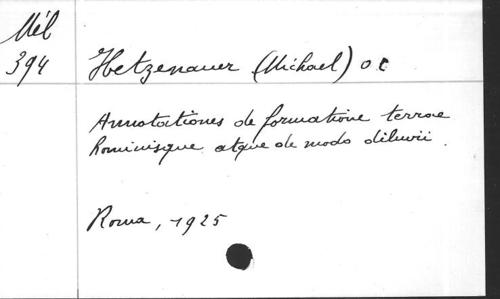 Mél
394
Hetzenauer (Michael) o c
Annotationes de formatione terrae
hominisque atque de modo diluvii.
Roma, 1925